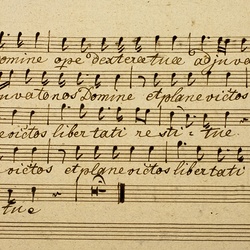 omine ope dexteræ tuæ adjuva
juvato nos Domine et plane victos
evictos libertati resti- tue
victos et plane victos libertati
tue